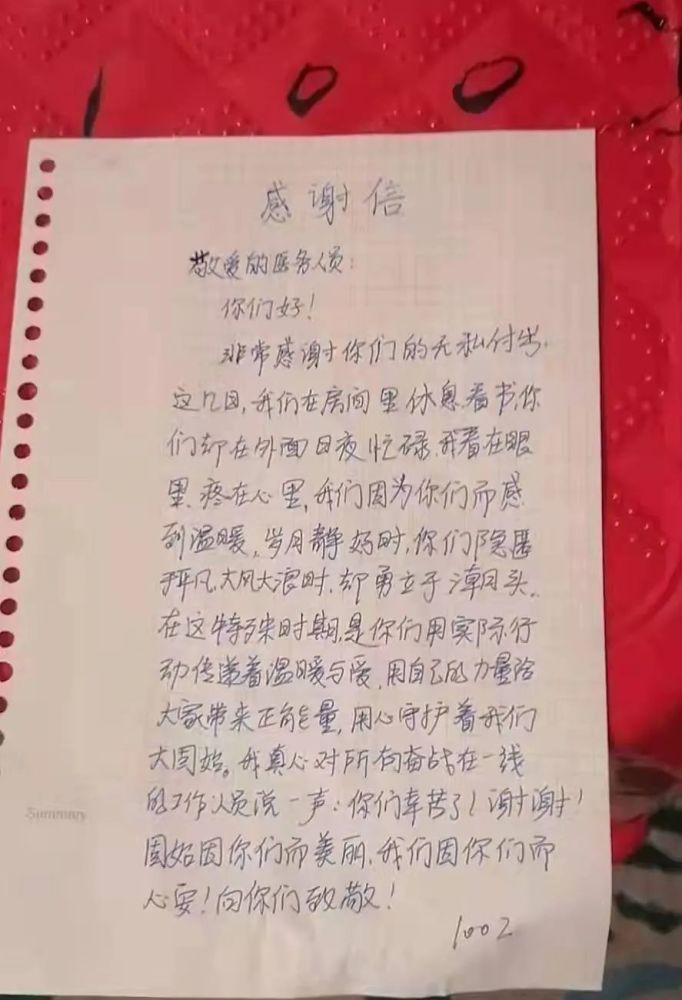 100
感谢信
敬爱的医务人员：
你们好！
非常感谢你们的无私付出.
这几日,我们在房间里休息看书,你
们却在外面日夜忙碌.我看在眼
里,疼在心里,我们因为你们而感
到温暖。岁月静好时,你们隐匿
平凡,大风大浪时.却勇立于潮头.
在这特殊时期,是你们用实际行
动传递着温暖与爱,用自己的力量给
大家带来正能量,用心守护着我们
大固始。我真心对所有奋战在一线
的工作人员说一声:你们辛苦了!谢谢!
Summary
固始因你们而美丽,我们因你们而
心安!向你们致敬!
1002